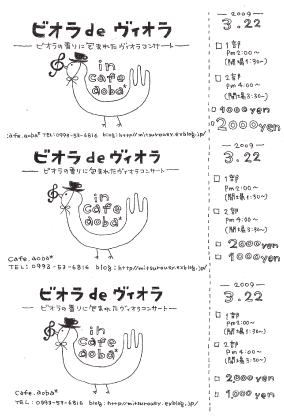 ビオラ de ヴィオラ
— ビオラの香りに包まれたヴィオラコンサート —
in
cafe
aoba*
cafe.aoba* TEL:0993-53-6816 blog:http://mitsurousy.exblog.jp/
— 2009 —
3.22
□ 1部
pm 2:00~
(開場1:30~)
□ 2部
pm 4:00~
(開場3:30~)
□ 1000yen
□ 2000yen
ビオラ de ヴィオラ
— ビオラの香りに包まれたヴィオラコンサート —
in
cafe
aoba*
cafe.aoba*
TEL:0993-53-6816 blog:http://mitsurousy.exblog.jp/
— 2009 —
3.22
□ 1部
pm 2:00~
(開場1:30~)
□ 2部
pm 4:00~
(開場3:30~)
□ 2000yen
□ 1000yen
ビオラ de ヴィオラ
— ビオラの香りに包まれたヴィオラコンサート —
in
cafe
aoba*
cafe.aoba*
TEL.0993-53-6816 blog:http://mitsurousy.exblog.jp/
— 2009 —
3.22
□ 1部
pm 2:00~
(開場1:30~)
□ 2部
pm 4:00~
(開場3:30~)
□ 2,000yen
□ 1,000yen